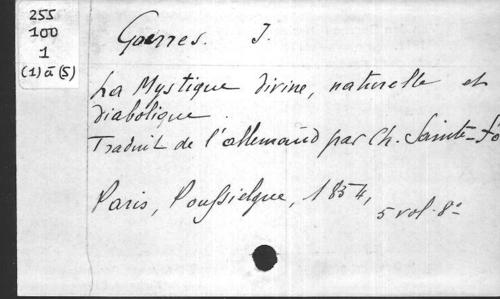 255
100
1
(1) à (5)
Goerres. J.
La Mystique divine, naturelle et
diabolique.
Traduit de l'allemand par Ch. Sainte-Fo
Paris, Poussielgue, 1854,
5 vol. 8º